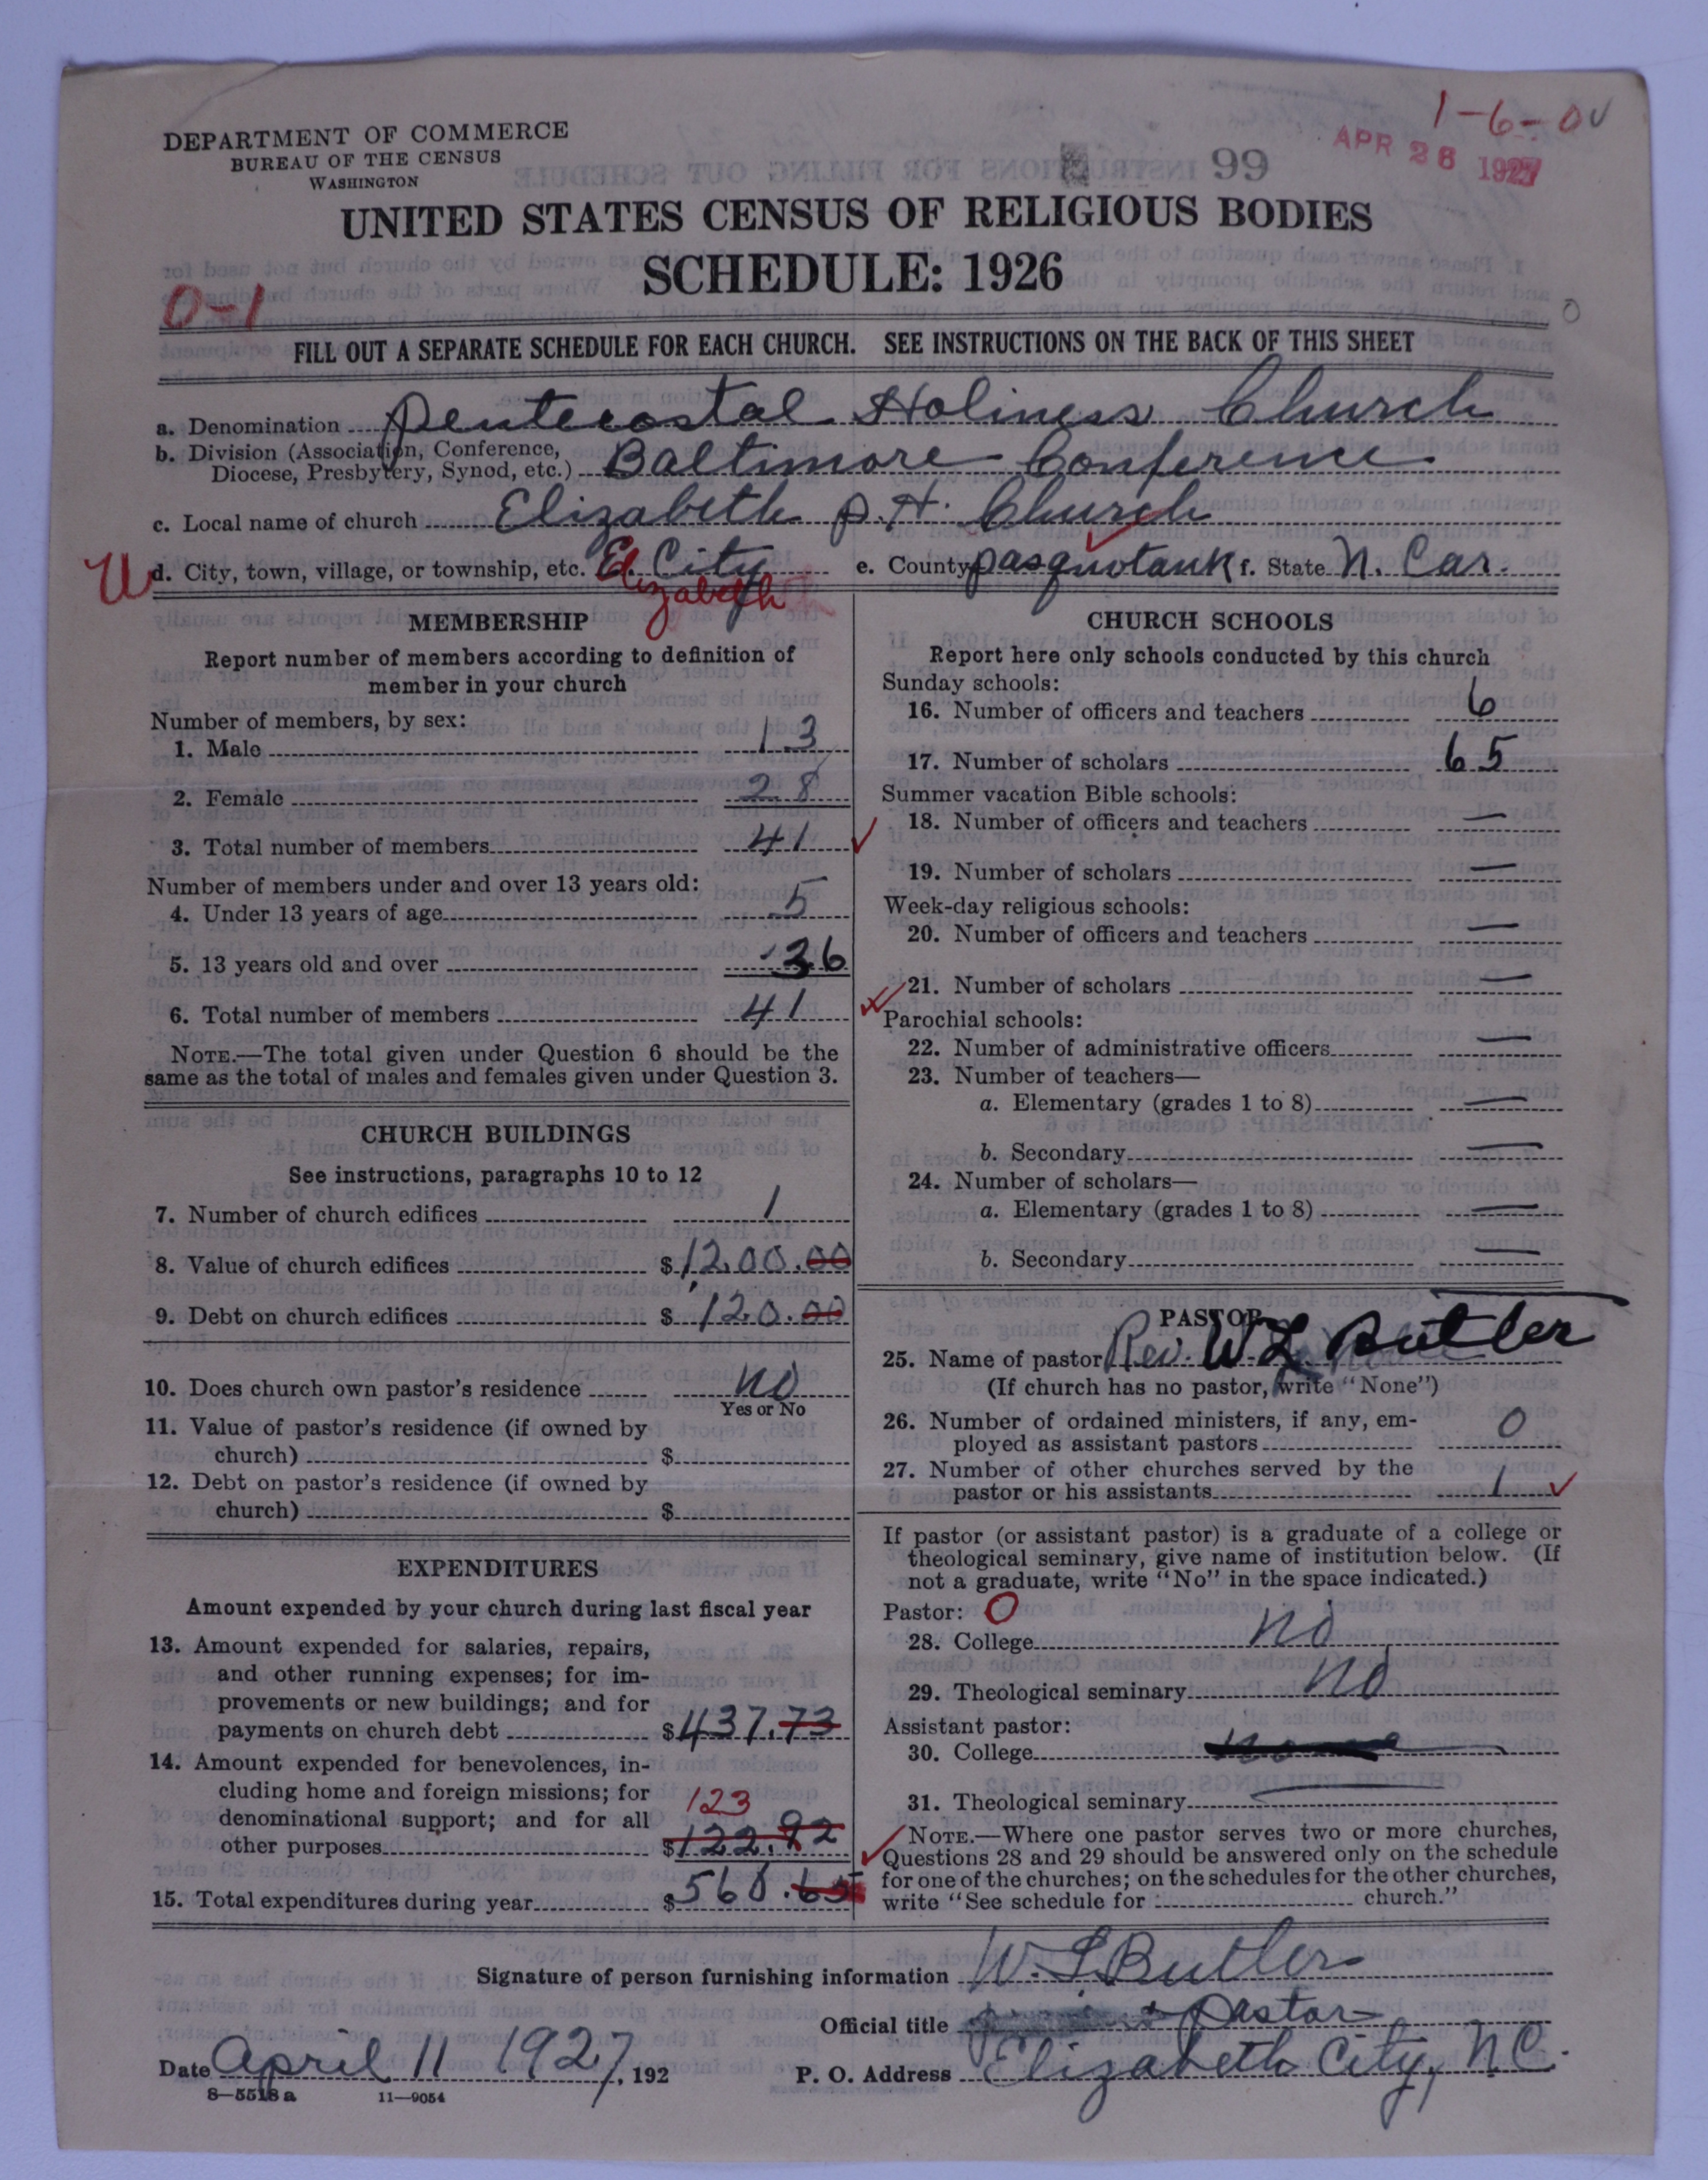 1-6-0
APR 26 1927
DEPARTMENT OF COMMERCE
BUREAU OF THE CENSUS
WASHINGTON
99
UNITED STATES CENSUS OF RELIGIOUS BODIES
SCHEDULE: 1926
0-1
FILL OUT A SEPARATE SCHEDULE FOR EACH CHURCH. SEE INSTRUCTIONS ON THE BACK OF THIS SHEET
a. Denomination Pentecostal Holiness Church
b. Division (Association, Conference,
Diocese, Presbytery, Synod, etc.) Baltimore Conference
c. Local name of church Elizabeth P.H. Church
d. City, town, village, or township, etc. E. City e. County pasquotank f. State N. Car.
Elizabeth
MEMBERSHIP
Report number of members according to definition of
member in your church
Number of members, by sex:
1. Male 13
2. Female 28
3. Total number of members 41
Number of members under and over 13 years old:
4. Under 13 years of age 5
5. 13 years old and over 36
6. Total number of members 41
NOTE.—The total given under Question 6 should be the
same as the total of males and females given under Question 3.
CHURCH BUILDINGS
See instructions, paragraphs 10 to 12
7. Number of church edifices 1
8. Value of church edifices $1200.00
9. Debt on church edifices $120.00
10. Does church own pastor's residence no
Yes or No
11. Value of pastor's residence (if owned by
church) $
12. Debt on pastor's residence (if owned by
church) $
EXPENDITURES
Amount expended by your church during last fiscal year
13. Amount expended for salaries, repairs,
and other running expenses; for im-
provements or new buildings; and for
payments on church debt $437.73
14. Amount expended for benevolences, in-
cluding home and foreign missions; for
denominational support; and for all
123
other purposes $122.92
15. Total expenditures during year $560.65
CHURCH SCHOOLS
Report here only schools conducted by this church
Sunday schools:
16. Number of officers and teachers 6
17. Number of scholars 65
Summer vacation Bible schools:
18. Number of officers and teachers —
19. Number of scholars —
Week-day religious schools:
20. Number of officers and teachers —
21. Number of scholars —
Parochial schools:
22. Number of administrative officers —
23. Number of teachers—
a. Elementary (grades 1 to 8) —
b. Secondary —
24. Number of scholars—
a. Elementary (grades 1 to 8) —
b. Secondary —
PASTOR
25. Name of pastor Rev. W L Butler
(If church has no pastor, write "None")
26. Number of ordained ministers, if any, em-
ployed as assistant pastors 0
27. Number of other churches served by the
pastor or his assistants 1
If pastor (or assistant pastor) is a graduate of a college or
theological seminary, give name of institution below. (If
not a graduate, write "No" in the space indicated.)
Pastor: 0
28. College no
29. Theological seminary no
Assistant pastor:
30. College
31. Theological seminary —
NOTE.—Where one pastor serves two or more churches,
Questions 28 and 29 should be answered only on the schedule
for one of the churches; on the schedules for the other churches,
write "See schedule for church."
Signature of person furnishing information W. L Butler
Official title Pastor
Date April 11 1927, 192
P. O. Address Elizabeth City, N.C.
8—5518 a 11—9054